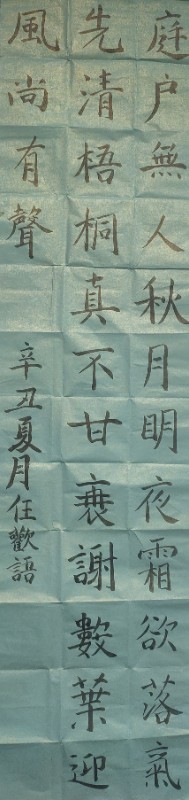 庭户無人秋月明夜霜欲落氣
先清梧桐真不甘衰謝數葉迎
風尚有聲
辛丑夏月任歡語